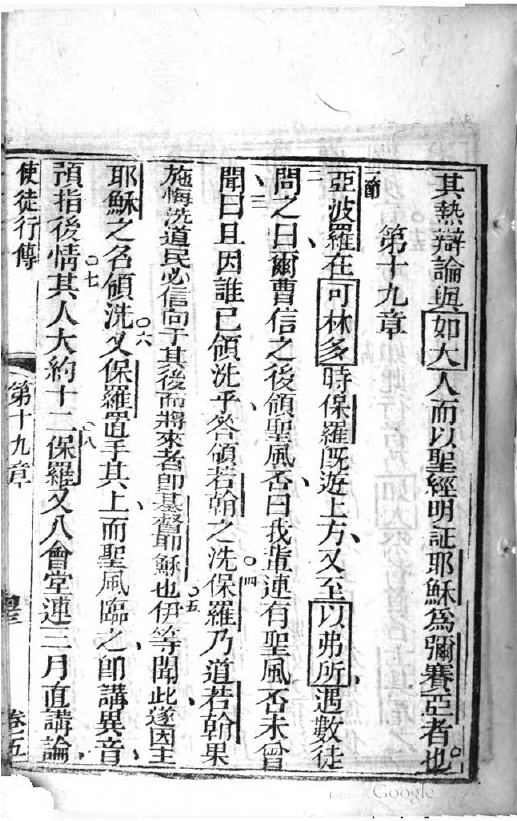 其熱辯論與如大人而以聖經明証耶穌為彌賽亞者也
第十九章
一節
亞波羅在可林多時保羅既遊上方又至以弗所遇數徒
二
問之曰爾曹信之後領聖風否曰我輩連有聖風否未曾
三
聞曰且因誰已領洗乎答領若翰之洗保羅乃道若翰果
四
施悔洗道民必信向于其後而將來者即基督耶穌也伊等聞此遂因主
五
耶穌之名領洗又保羅置手其上而聖風臨之即講異音
六
預指後情其人大約十二保羅又入會堂連三月直講論
七
八
使徒行傳
第十九章
卷五
Google